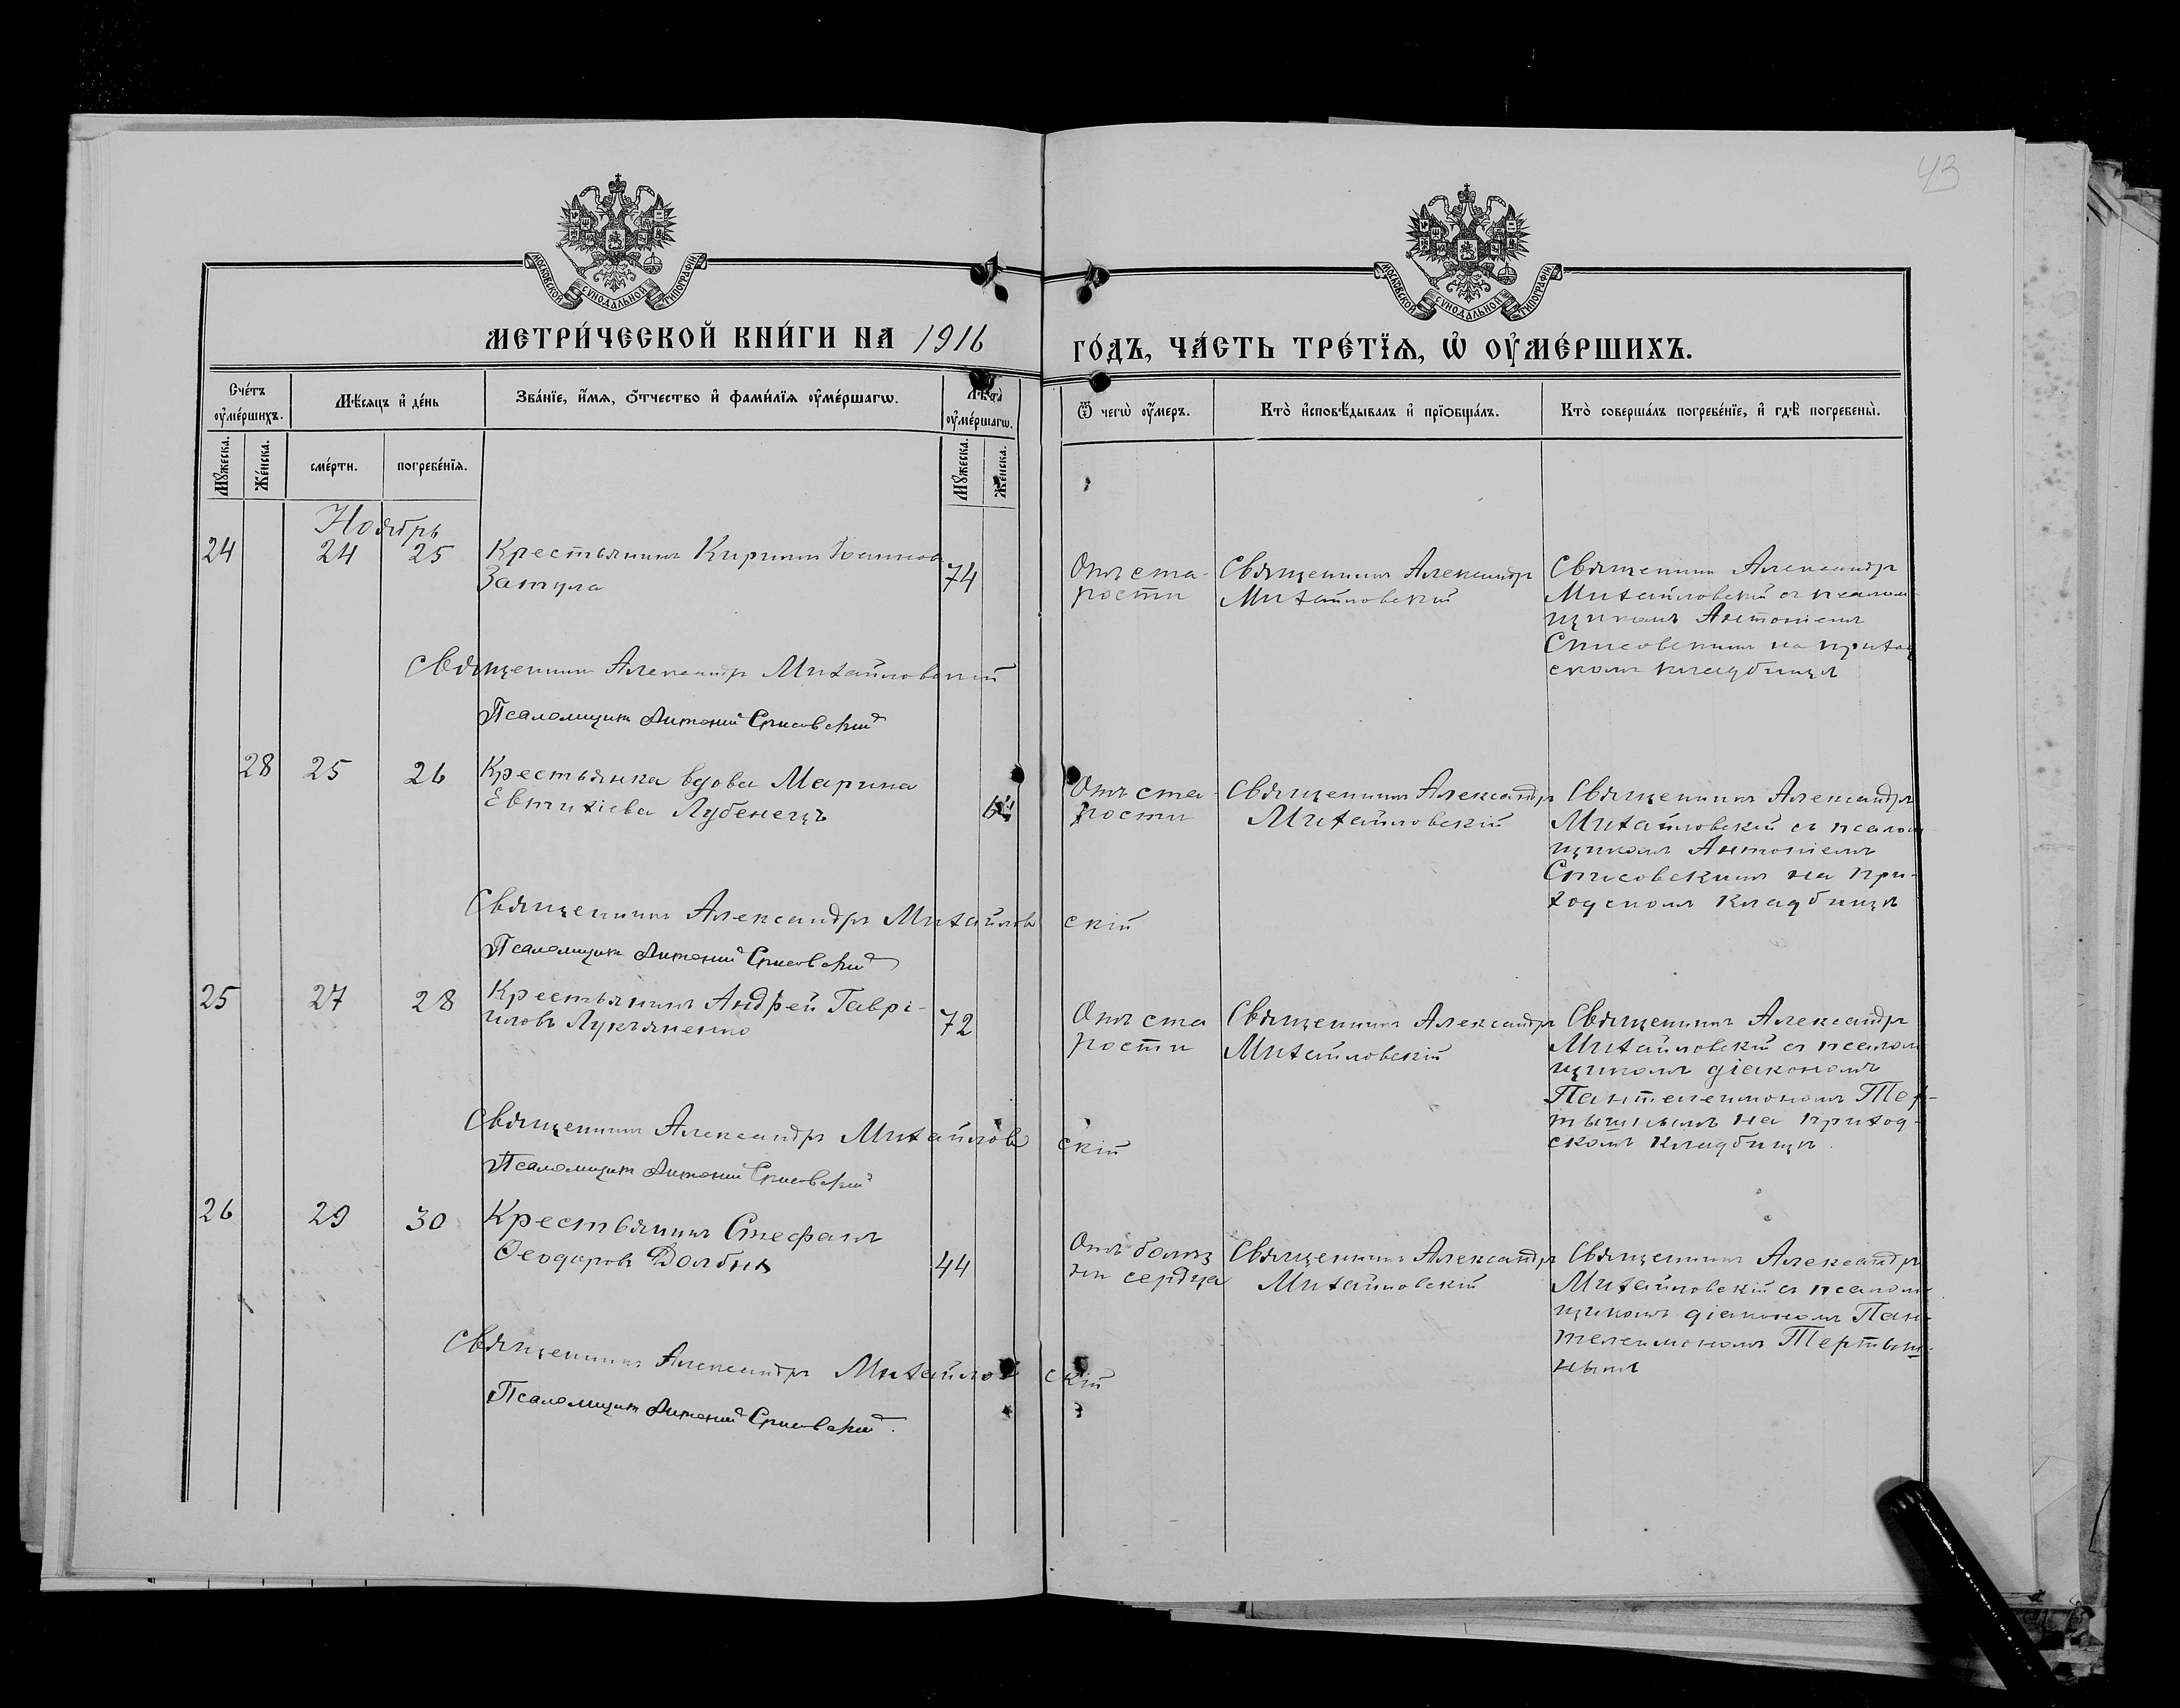 43
МОСКОВСКОЙ СѴНОДАЛЬНОЙ ТИПОГРАФІИ
МОСКОВСКОЙ СѴНОДАЛЬНОЙ ТИПОГРАФІИ
МЕТРИ́ЧЕСКОЙ КНИ́ГИ НА 1916
ГО́ДЪ, ЧА́СТЬ ТРЕ́ТЇѦ, Ѡ҆ ОУ҆МЕ́РШИХЪ.
Сче́тъ оу҆ме́ршихъ.
Мѣ́сѧцъ и҆ де́нь
Зва́нїе, и҆́мѧ, ѻ҆́тчество и҆ фами́лїѧ оу҆ме́ршагѡ.
Лѣ́та̀ оу҆ме́ршагѡ.
Ѿ чегѡ̀ оу҆́меръ.
Кто̀ и҆сповѣ́дывалъ и҆ прїѻбща́лъ.
Кто̀ соверша́лъ погребе́нїе, и҆ гдѣ̀ погребены̀.
Мꙋ́жеска.
Же́нска.
сме́рти.
погребе́нїѧ.
Мꙋ́жеска.
Же́нска.
Ноябрь
24 24 25 Крестьянинъ Кириллъ Іоаннов
Затула 74
Отъ ста-
рости
Священникъ Александръ
Михайловскій
Священникъ Александръ
Михайловскій съ псалом
щикомъ Антоніемъ
Списовскимъ на приход
скомъ кладбищѣ
Священникъ Александръ Михайловскій
Псаломщикъ Антоній Списовскій
28 25 26 Крестьянка вдова Марина
Евтихіева Лубенецъ
Отъ ста-
рости
Священникъ Александръ
Михайловскій
Священникъ Александръ
Михайловскій съ псалом
щикомъ Антоніемъ
Списовскимъ на при-
ходскомъ кладбищѣ
Священникъ Александръ Михайловскій
Псаломщикъ Антоній Списовскій
25 27 28 Крестьянинъ Андрей Гаврі-
иловъ Лукьяненко 72
Отъ ста
рости
Священникъ Александръ
Михайловскій
Священникъ Александръ
Михайловскій съ псалом
щикомъ діакономъ
Пантелеимономъ Тер-
тышнымъ на приход-
скомъ кладбищѣ.
Священникъ Александръ Михайловскій
Псаломщикъ Антоній Списовскій
26 29 30 Крестьянинъ Стефанъ
Ѳеодоровъ Долбня 44
Отъ болѣз
ни сердца
Священникъ Александръ
Михайловскій
Священникъ Александръ
Михайловскій съ псалом-
щикомъ діакономъ Пан-
телеимономъ Тертыш-
нымъ
Священникъ Александръ Михайловскій
Псаломщикъ Антоній Списовскій.